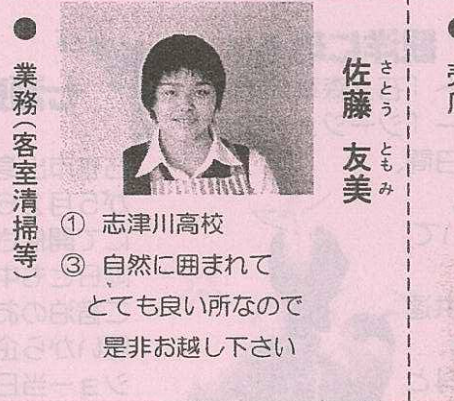 さとう ともみ
佐藤 友美
● 業務（客室清掃等）
① 志津川高校
③ 自然に囲まれて
とても良い所なので
是非お越し下さい